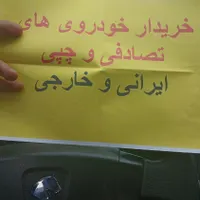 خریدار خودروی های
تصادفی و چپی
ایرانی و خارجی